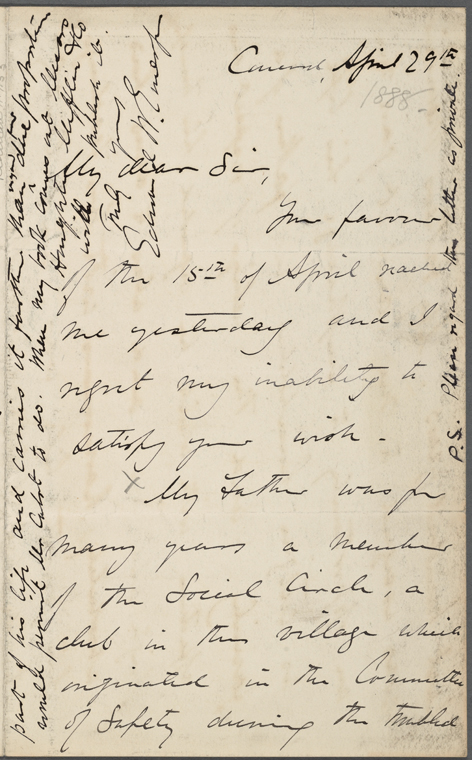 Concord, April 29th
1888
My dear Sir,
Your favour
of the 15th of April reached
me yesterday and I
regret my inability to
satisfy your wish -
X My Father was for
many years a member
of the Social Circle, a
club in this village which
originated in the Committee
of Safety during the troubled
part of his life and carries it further than due proportion
would permit Mr Cabot to do. When my book comes out Messrs
Houghton Mifflin & Co
will publish it.
Truly yours
Edward W. Emerson
P.S. Please regard this letter as private.